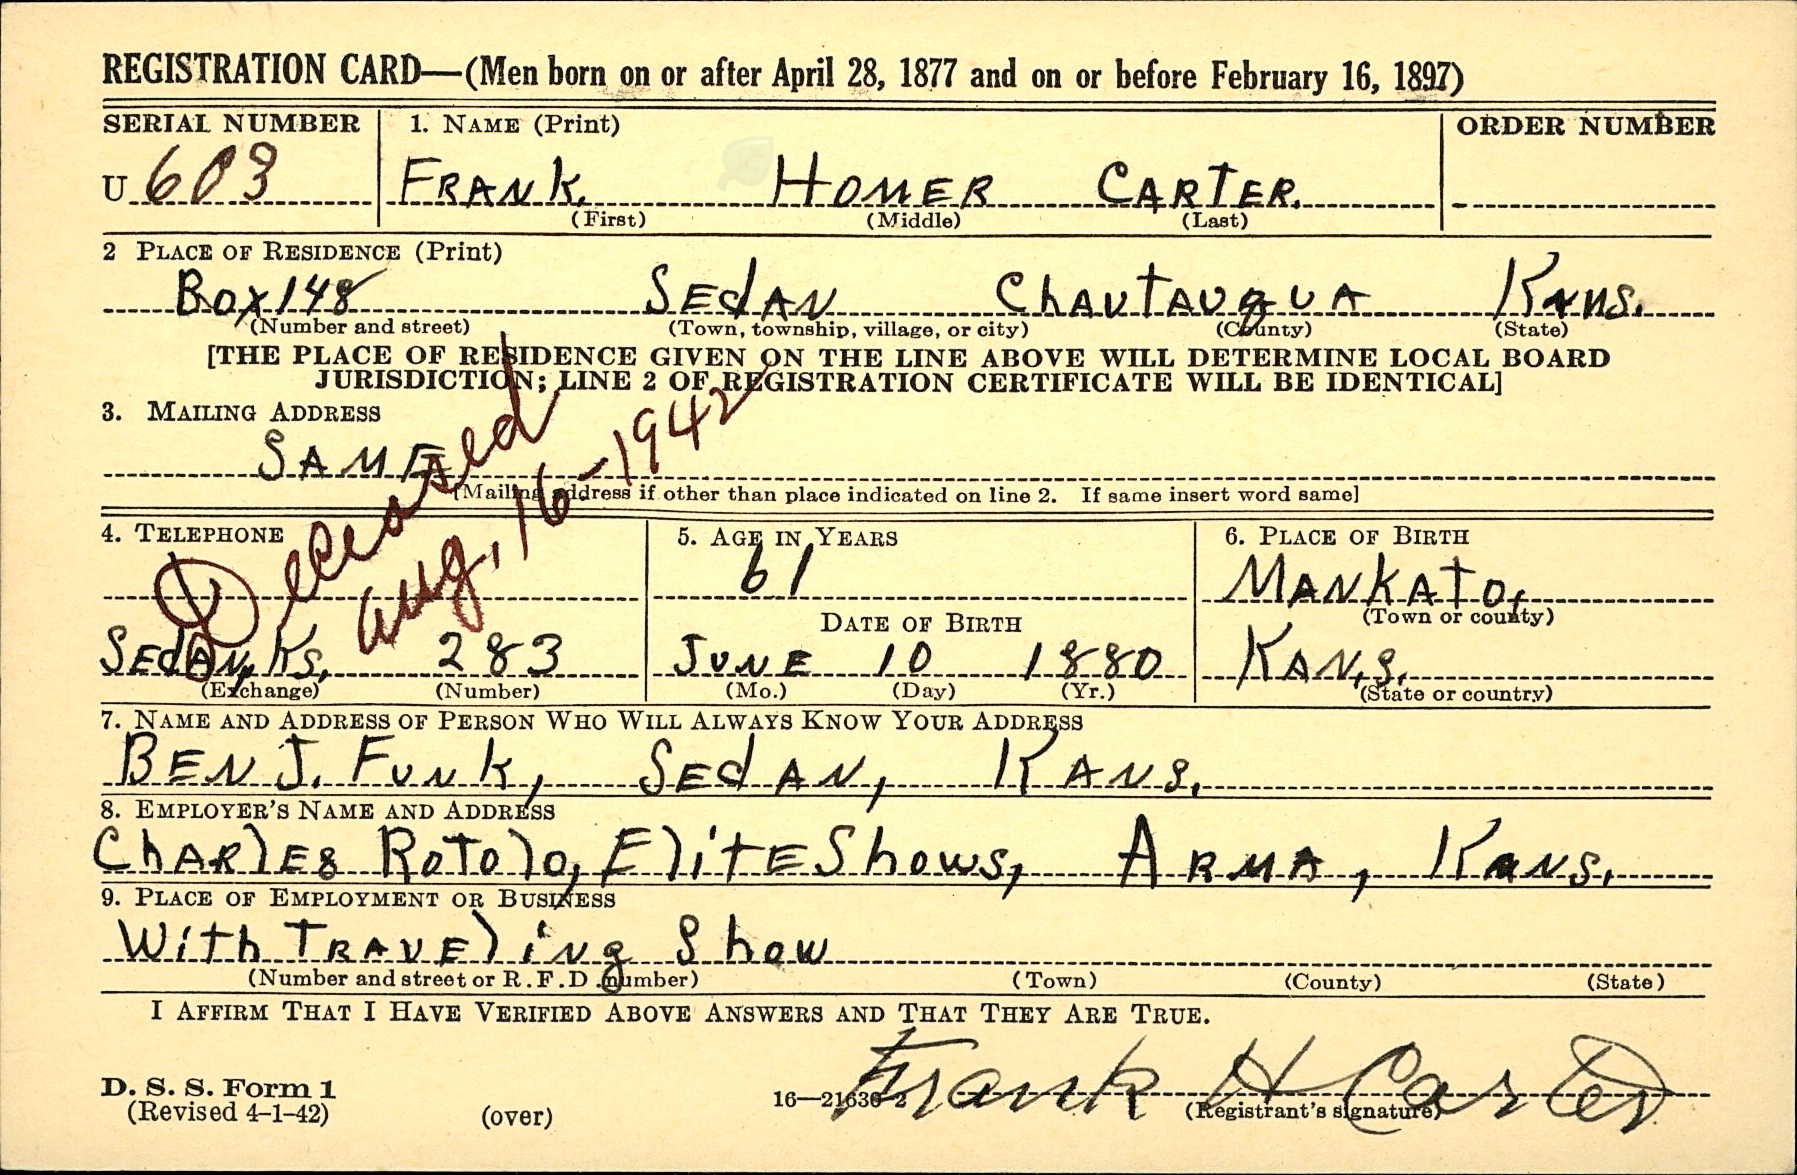 REGISTRATION CARD—(Men born on or after April 28, 1877 and on or before February 16, 1897)
SERIAL NUMBER 1. NAME (Print) ORDER NUMBER
U 603 FRANK. HOMER CARTER.
(First) (Middle) (Last)
2 PLACE OF RESIDENCE (Print)
Box 148 SEdAN ChAUTAUgUA KANS.
(Number and street) (Town, township, village, or city) (County) (State)
[THE PLACE OF RESIDENCE GIVEN ON THE LINE ABOVE WILL DETERMINE LOCAL BOARD
JURISDICTION; LINE 2 OF REGISTRATION CERTIFICATE WILL BE IDENTICAL]
3. MAILING ADDRESS
SAME
[Mailing address if other than place indicated on line 2. If same insert word same]
Deceased
Aug. 16-1942
4. TELEPHONE 5. AGE IN YEARS 6. PLACE OF BIRTH
61 MANKATO,
DATE OF BIRTH (Town or county)
SEdAN, Ks. 283 JUNE 10 1880 KANS.
(Exchange) (Number) (Mo.) (Day) (Yr.) (State or country)
7. NAME AND ADDRESS OF PERSON WHO WILL ALWAYS KNOW YOUR ADDRESS
BEN J. FUNK, SEdAN, KANS.
8. EMPLOYER'S NAME AND ADDRESS
ChARlES RoTolo, EliTE Shows, ARMA, KANS.
9. PLACE OF EMPLOYMENT OR BUSINESS
With TRAVEliNg Show
(Number and street or R.F.D. number) (Town) (County) (State)
I AFFIRM THAT I HAVE VERIFIED ABOVE ANSWERS AND THAT THEY ARE TRUE.
Frank H Carter
D. S. S. Form 1 16—21630-2 (Registrant's signature)
(Revised 4-1-42) (over)